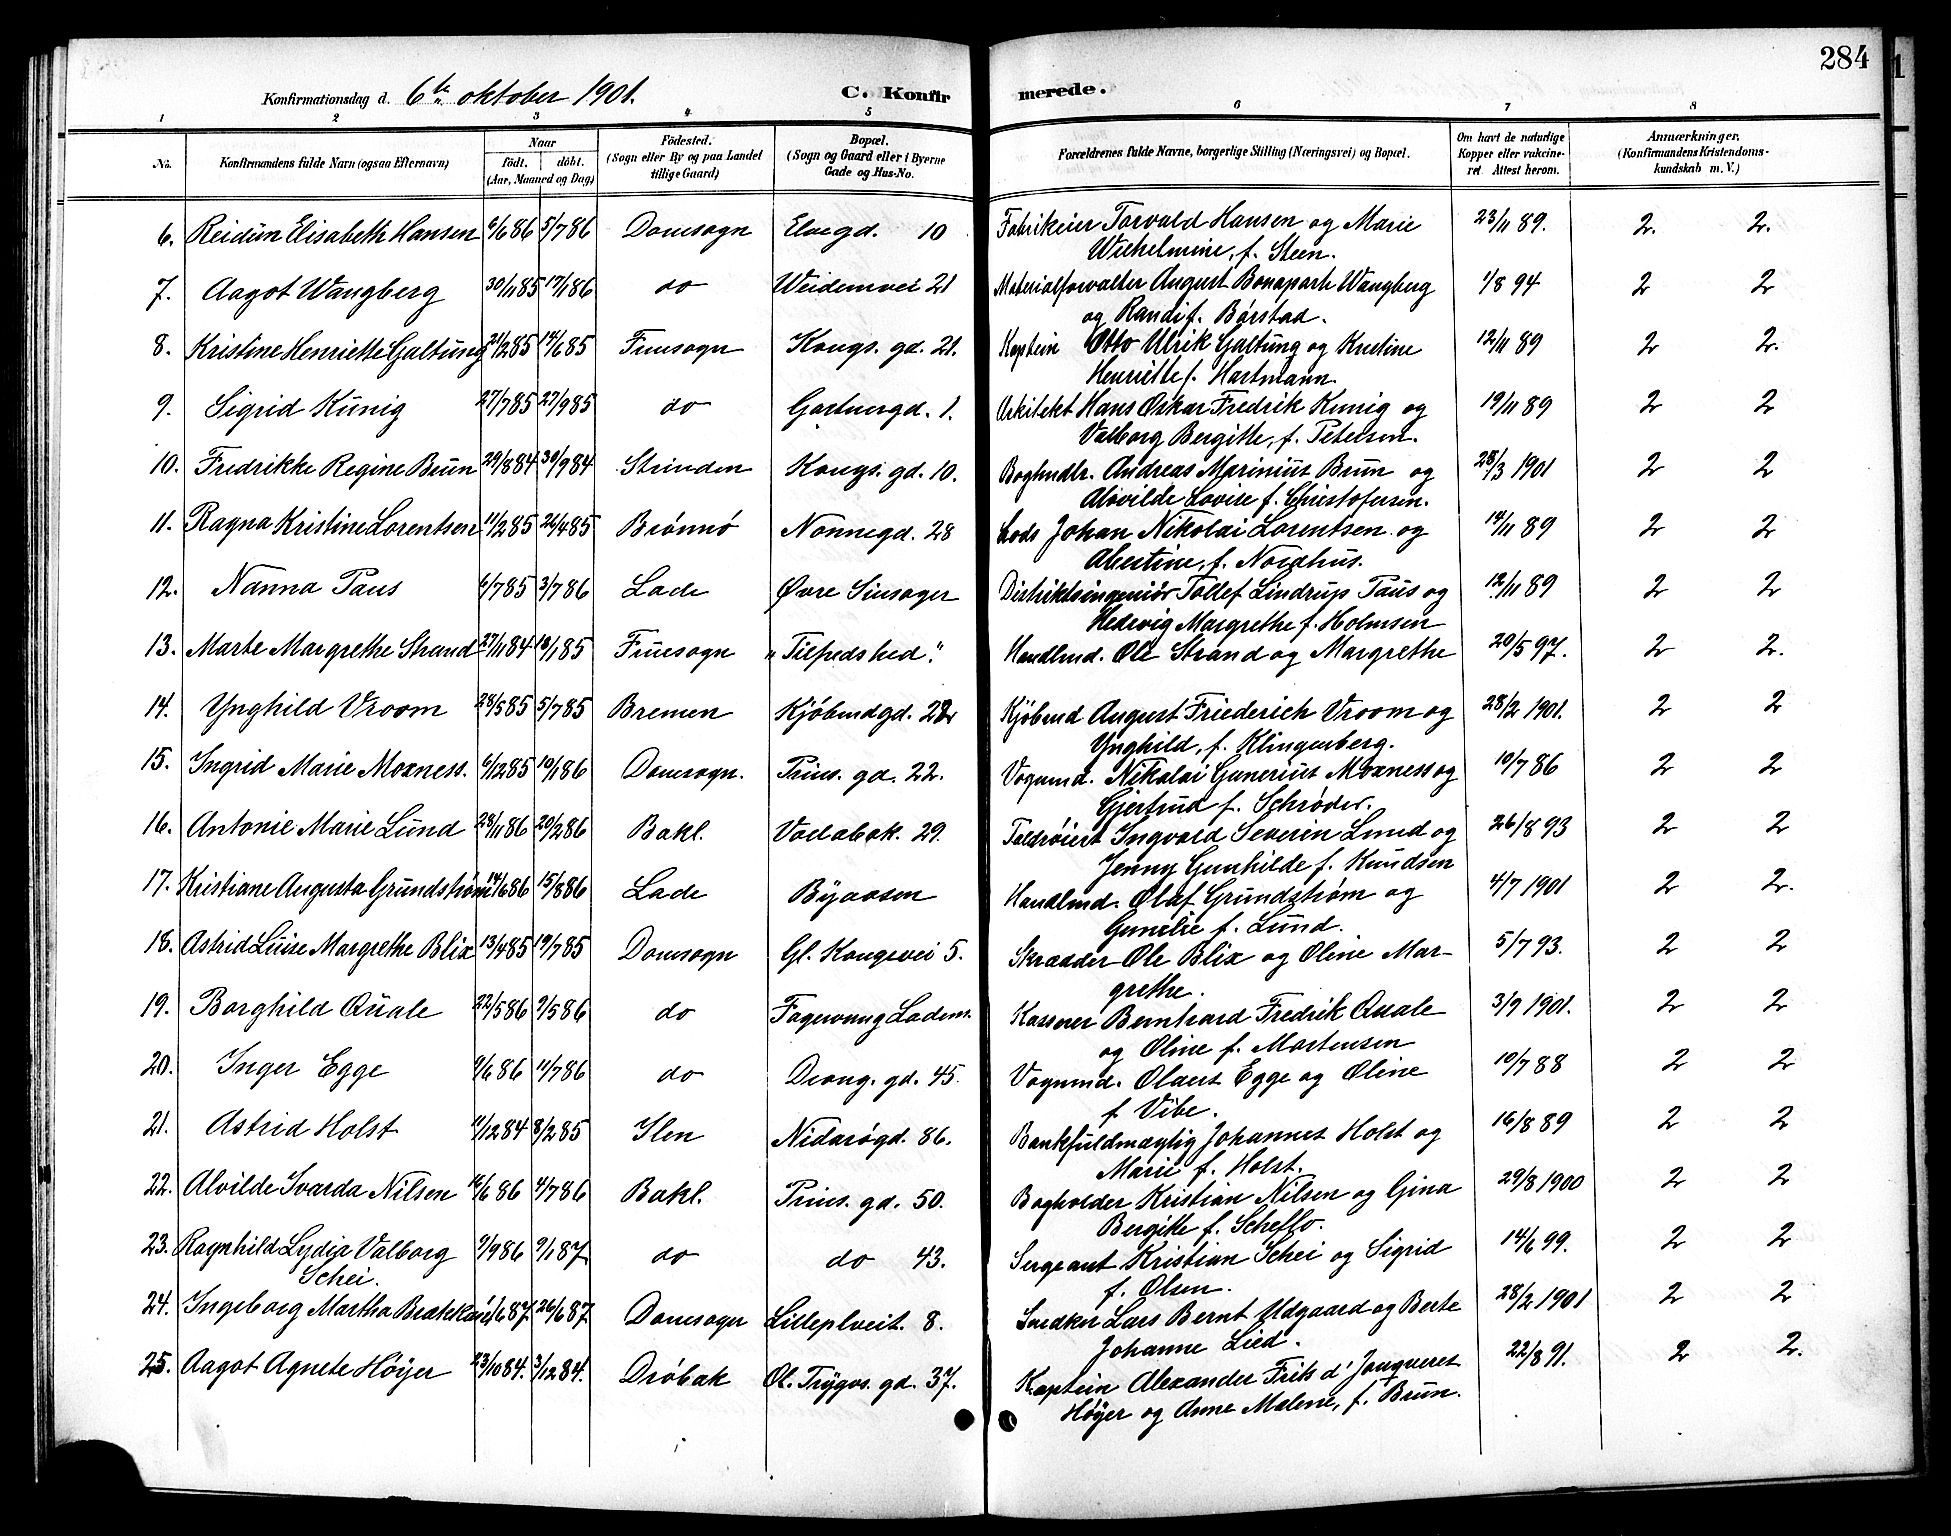 284
Konfirmationsdag d. 6te oktober 1901. C. Konfir merede.
1 2 3 4 5 6 7 8
No. Konfirmandens fulde Navn (ogsaa Efternavn) Naar født. døbt. (Aar, Maaned og Dag) Födested. (Sogn eller By og paa Landet tillige Gaard) Bopæl. (Sogn og Gaard eller i Byerne Gade og Hus-No. Forældrenes fulde Navne, borgerlige Stilling (Næringsvei) og Bopæl. Om havt de naturlige Kopper eller vakcineret. Attest herom. Anmærkninger. (Konfirmandens Kristendomskundskab m. V.)
6. Reidun Elisabeth Hansen 6/6 86 5/7 86 Domsogn Elvegd. 10 Fabrikeier Torvald Hansen og Marie 23/11 89. 2. 2.
Wilhelmine, f. Steen.
7. Aagot Wangberg 30/11 85 17/1 86 do Weidemvei 21 Materialforvalter August Bonaparte Wangberg 1/8 94 2 2
og Randi f. Børstad.
8. Kristine Henriette Galtung 21/2 85 14/6 85 Fruesogn Kongs. gd. 21. Kaptein Otto Ulrik Galtung og Kristine 12/11 89 2 2.
Henriette f. Hartmann.
9. Sigrid Kunig 27/7 85 27/9 85 do Gartnergd. 1. Arkitekt Hans Oskar Fredrik Kunig og 19/11 89 2 2
Valborg Bergitte, f. Petersen.
10. Fredrikke Regine Brun 29/8 84 30/9 84 Strinden Kongs. gd. 10. Boghndlr. Andreas Marinius Brun og 28/3 1901 2 2
Alovilde Lovise f. Christofersen.
11. Ragna Kristine Lorentsen 11/2 85 26/4 85 Brønnø Nonnegd. 28 Lods Johan Nikolai Lorentsen og 14/11 89 2 2
Albertine, f. Nordhus.
12. Nanna Paus 6/7 85 3/7 86 Lade Øvre Sinsager Distriktsingeniör Tollef Lindrup Paus og 12/11 89 2 2
Hedevig Margrethe f. Holmsen
13. Marte Margrethe Strand 27/11 84 18/1 85 Fruesogn "Tilfredshed". Handlmd. Ole Strand og Margrethe 20/5 97. 2 2.
14. Ynghild Vroom 28/5 85 5/7 85 Bremen Kjøbmdgd. 22 Kjöbmd August Friederich Vroom og 28/2 1901. 2 2
Ynghild, f. Klingenberg.
15. Ingrid Marie Moxness. 6/12 85 10/1 86 Domsogn. Prins. gd. 22. Vognmd. Nikolai Gunerius Moxness og 10/7 86 2 2
Gjertrud f. Schrøder.
16. Antonie Marie Lund 28/11 86 20/2 86 Bakl. Vodabak. 29. Toldrøiert Ingvald Severin Lund og 26/8 93 2 2
Jenny Gunhilde f. Knudsen
17. Kristiane Augusta Grundstrøm 14/6 86 15/8 86 Lade Byaasen Handlmd. Olaf Grundstrøm og 4/7 1901 2 2.
Gunelie f. Lund.
18. Astrid Luise Margrethe Blix 13/4 85 19/7 85 Domsogn Gl. Kongevei 5. Skrædder Ole Blix og Oline Mar- 5/7 93. 2 2
grethe.
19. Borghild Quale 22/5 86 9/5 86 do Fagervang Ladem. Kasserer Bernhard Fredrik Quale 3/9 1901. 2 2
og Oline f. Mortensen
20. Inger Egge 9/6 86 11/7 86 do Drong. gd. 45. Vognmd. Olaus Egge og Oline 10/7 88 2 2
f. Vibe.
21. Astrid Holst 11/12 84 8/2 85 Ilen Nidarøgd. 86. Bankfuldmægtig Johannes Holst og 16/8 89 2 2
Marie f. Holst.
22. Alvilde Svarda Nilsen 16/6 86 4/7 86 Bakl. Prins. gd. 50. Bogholder Kristian Nilsen og Gina 29/8 1900 2 2
Bergitte f. Scheflo.
23. Ragnhild Lydia Valborg 9/9 86 9/1 87 do do 43. Sergeant Kristian Schei og Sigrid 14/6 99. 2 2
Schei. f. Olsen.
24. Ingeborg Martha Brækkan 1/6 87 26/6 87 Domsogn Lilleplveit. 8. Snedker Lars Bernt Udgaard og Berte 28/2 1901 2 2
Johanne Lied.
25. Aagot Agnete Høyer 23/10 84. 3/12 84. Drøbak Ol. Trygvs. gd. 37. Kaptein Alexander Frits d'Jonqueres 22/8 91. 2 2.
Høyer og Anne Malene, f. Brun.